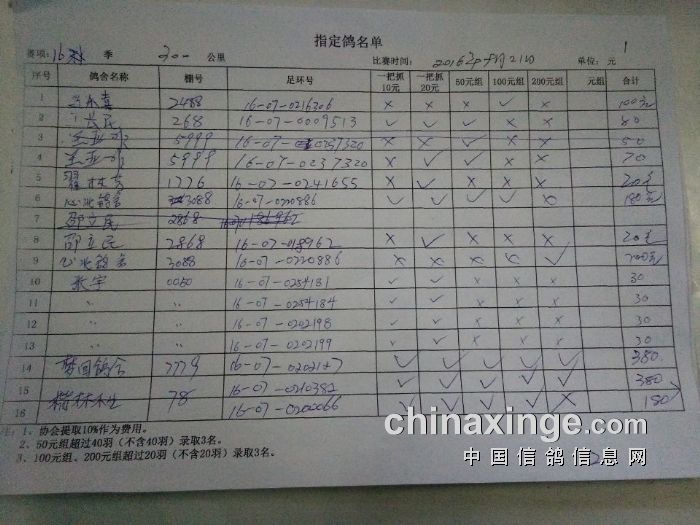 指定鸽名单
1
赛项: 16 季 公里 比赛时间: 2016年 月21日 单位: 元
序号 鸽舍名称 棚号 足环号 一把抓10元 一把抓20元 50元组 100元组 200元组 元组 合计
1 2488 16-07-0216306 × × × ✓ × 100元
2 268 16-07-0009513 ✓ ✓ ✓ × × 80
3 5999 16-07-0237320 × × ✓ × × 50
4 5999 16-07-0237320 × ✓ ✓ × × 70
5 1776 16-07-0241655 × ✓ × × × 20元
6 3088 16-07-0220886 ✓ ✓ ✓ ✓ × 180元
7 邵立民 2868
8 邵立民 2868 × ✓ × × × 20元
9 3088 16-07-0220886 × × × × ✓ 200元
10 张宇 0050 16-07-0254181 ✓ ✓ × × × 30
11 〃 〃 16-07-0254184 ✓ ✓ × × × 30
12 〃 〃 16-07-0202198 ✓ ✓ × × × 30
13 〃 〃 16-07-0202199 ✓ ✓ × × × 30
14 梦回鸽舍 7779 ✓ ✓ ✓ ✓ ✓ 380
15 16-07-0210382 ✓ ✓ ✓ ✓ ✓ 380
16 78 16-07-0200066 ✓ ✓ ✓ ✓ × 180
注: 1、协会提取10%作为费用。
2、50元组超过40羽(不含40羽)录取3名。
3、100元组、200元组超过20羽(不含20羽)录取3名。
chinaxinge.com
中国信鸽信息网